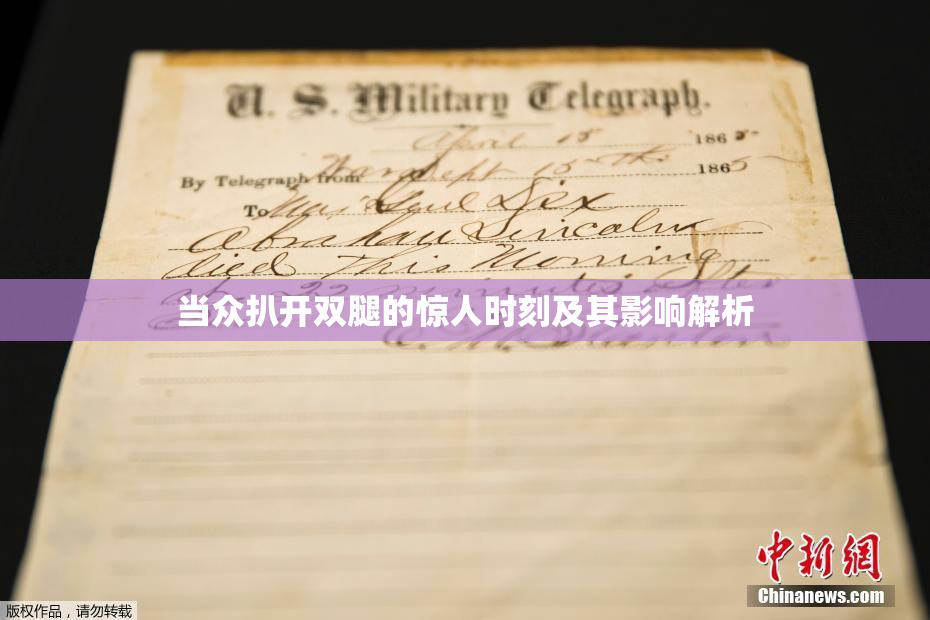 U. S. Military Telegraph.
April 15 1865
By Telegraph from War Dept 15th 1865
To Maj Genl Dix
Abraham Lincoln
died This Morning
at 22 minutes after
当众扒开双腿的惊人时刻及其影响解析
E. M. Stanton
中新网
Chinanews.com
版权作品，请勿转载